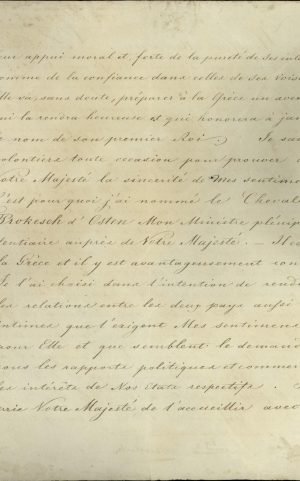 eur appui moral et, forte de la pureté de ses inte
comme de la confiance dans celles de ses voisi
lle va, sans doute, préparer à la Grèce un ave
ui la rendra heureuse et qui honorera à jam
le nom de son premier Roi. Je sai
volontiers toute occasion pour prouver à
Votre Majesté la sincérité de mes sentime
C'est pour quoi j'ai nommé le Cheval
Prokesch d'Osten Mon Ministre plénip
tentiaire auprès de Votre Majesté. — Il co
la Grèce et il y est avantageusement con
Je l'ai choisi dans l'intention de rend
les relations entre les deux pays aussi
intimes que l'exigent Mes sentimens
pour Elle et que semblent le demand
tous les rapports politiques et commer
les intérêts de Nos Etats respectifs.
prie Votre Majesté de l'accueillir avec